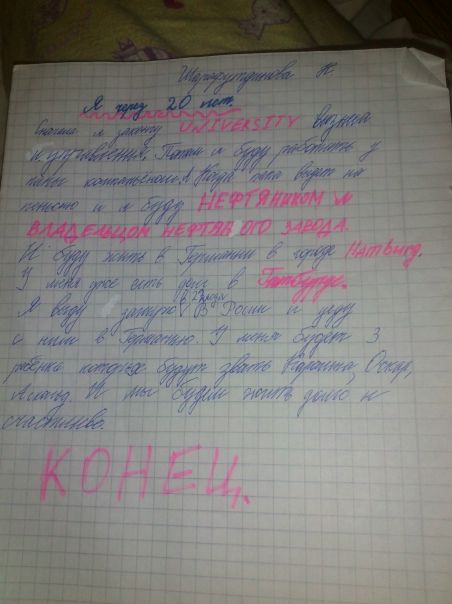 Шарафутдинова Н.
Я через 20 лет.
Сначала я закончу UNIVERSITY бизнеса
и управления. Потом я буду работать у
папы А Когда папа выдет на
пенсию и я буду НЕФТЯНИКОМ И
ВЛАДЕЛЬЦОМ НЕФТЯНОГО ЗАВОДА.
И буду жить в Германии в городе HAMBURG.
У меня уже есть дом в Гамбурге.
Я выду замуж в 23 года В Росии и уеду
с ним в Германию. У меня будет 3
ребенка которых будут звать Каролина, Оскар,
И мы будем жить долго и
счастливо.
КОНЕЦ.